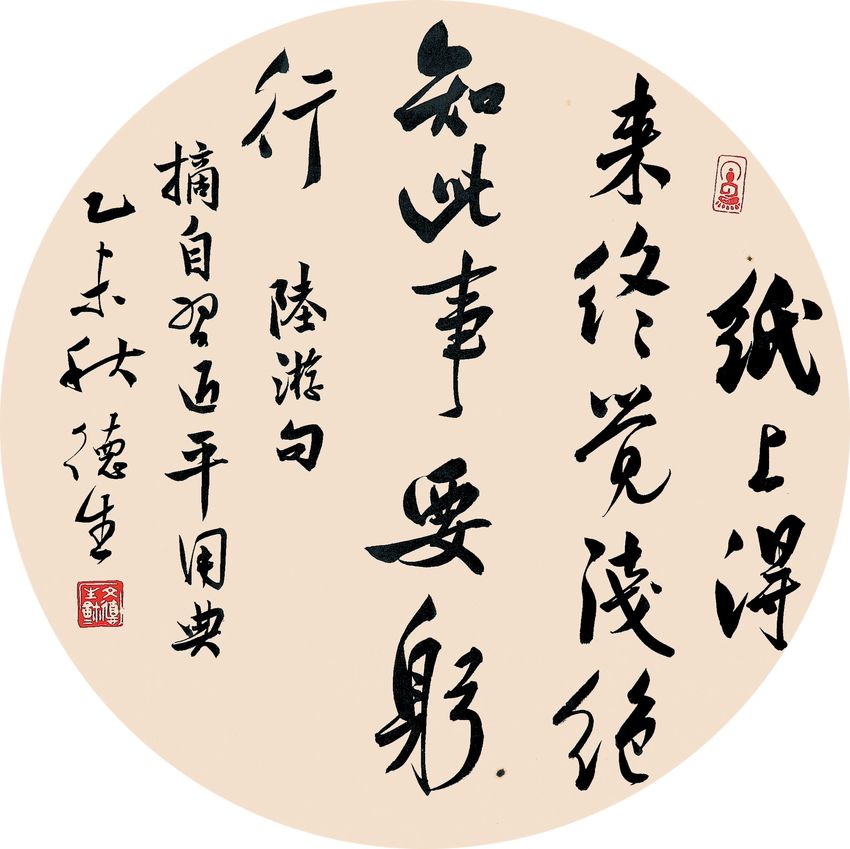 紙上得
来终觉淺絕
知此事要躬
行 陸游句
摘自習近平用典
乙未秋德生